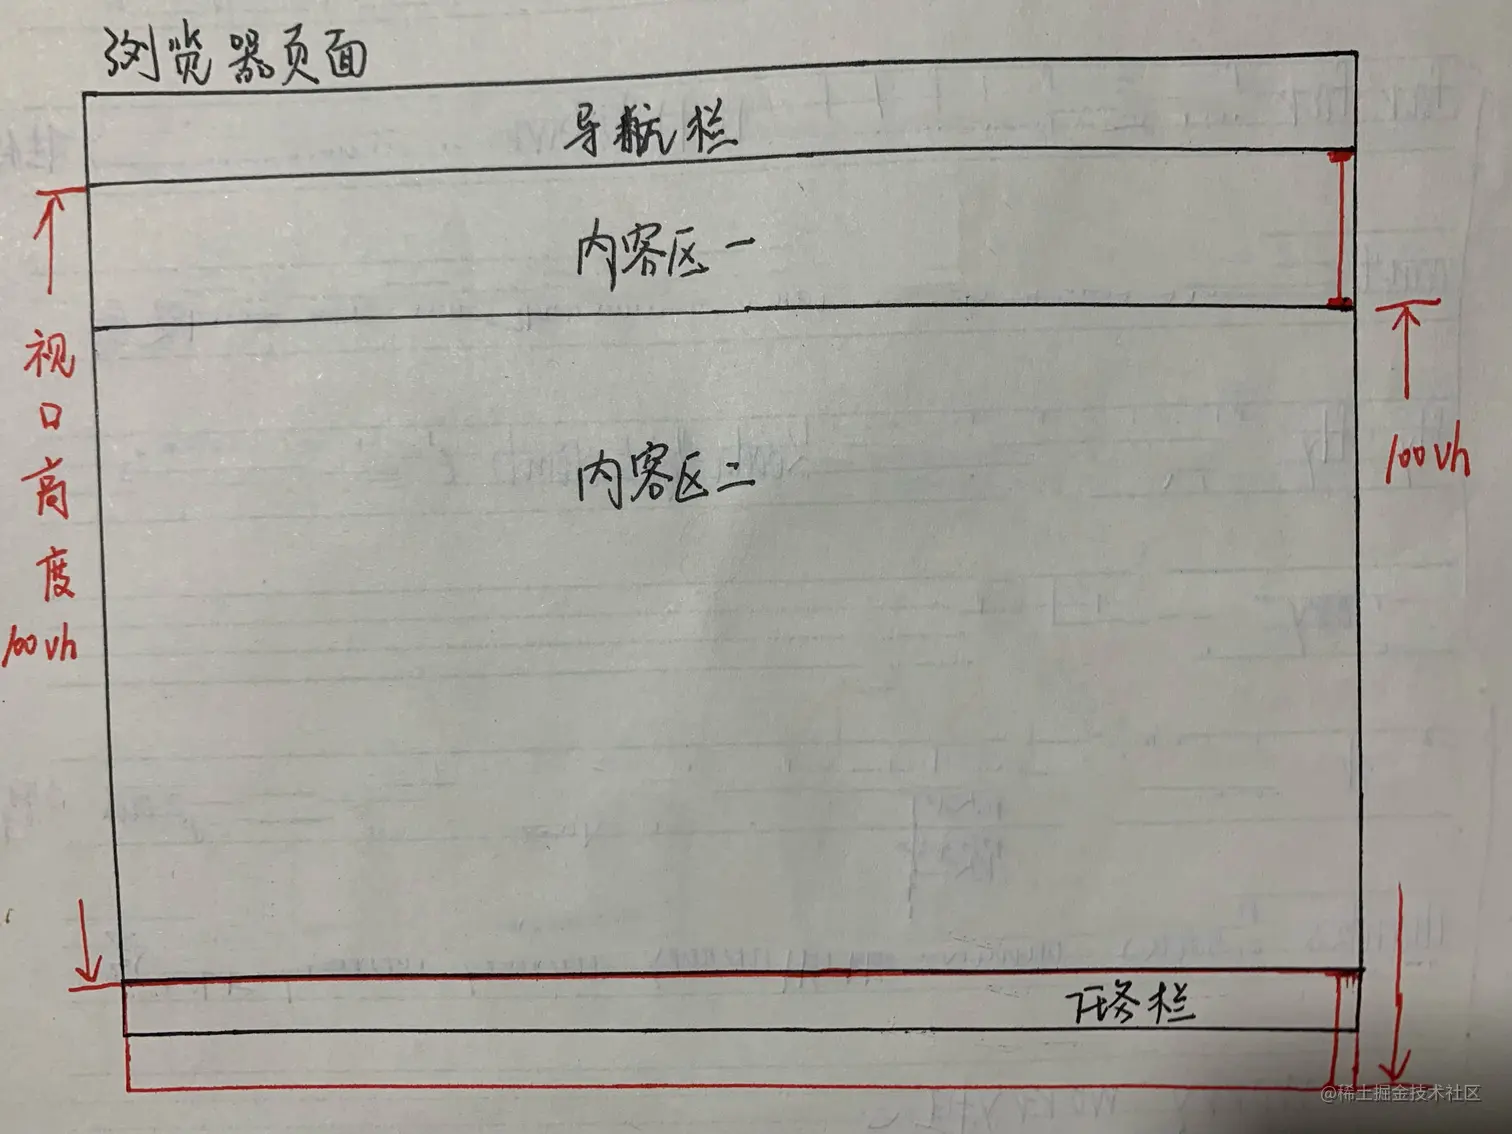 浏览器页面
导航栏
内容区一
视口高度
100vh
100vh
内容区二
任务栏
@稀土掘金技术社区